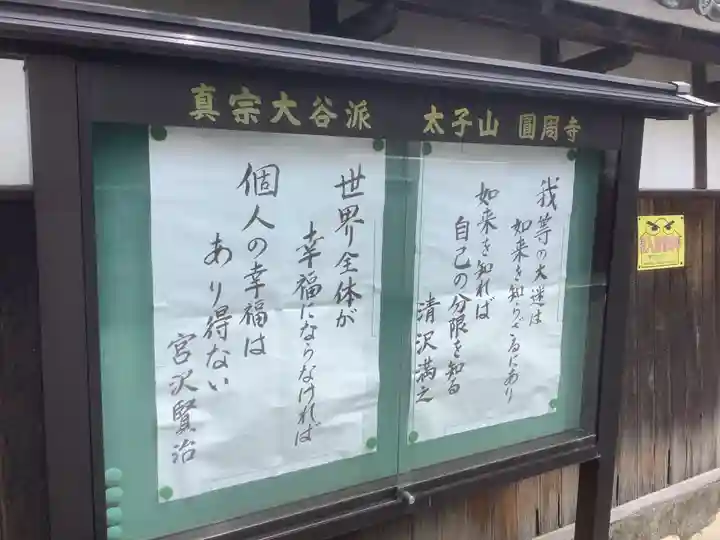 真宗大谷派 太子山 圓周寺
我等の大迷は
如来を知らざるにあり
如来を知れば
自己の分限を知る
清沢満之
世界全体が
幸福にならなければ
個人の幸福は
あり得ない
宮沢賢治